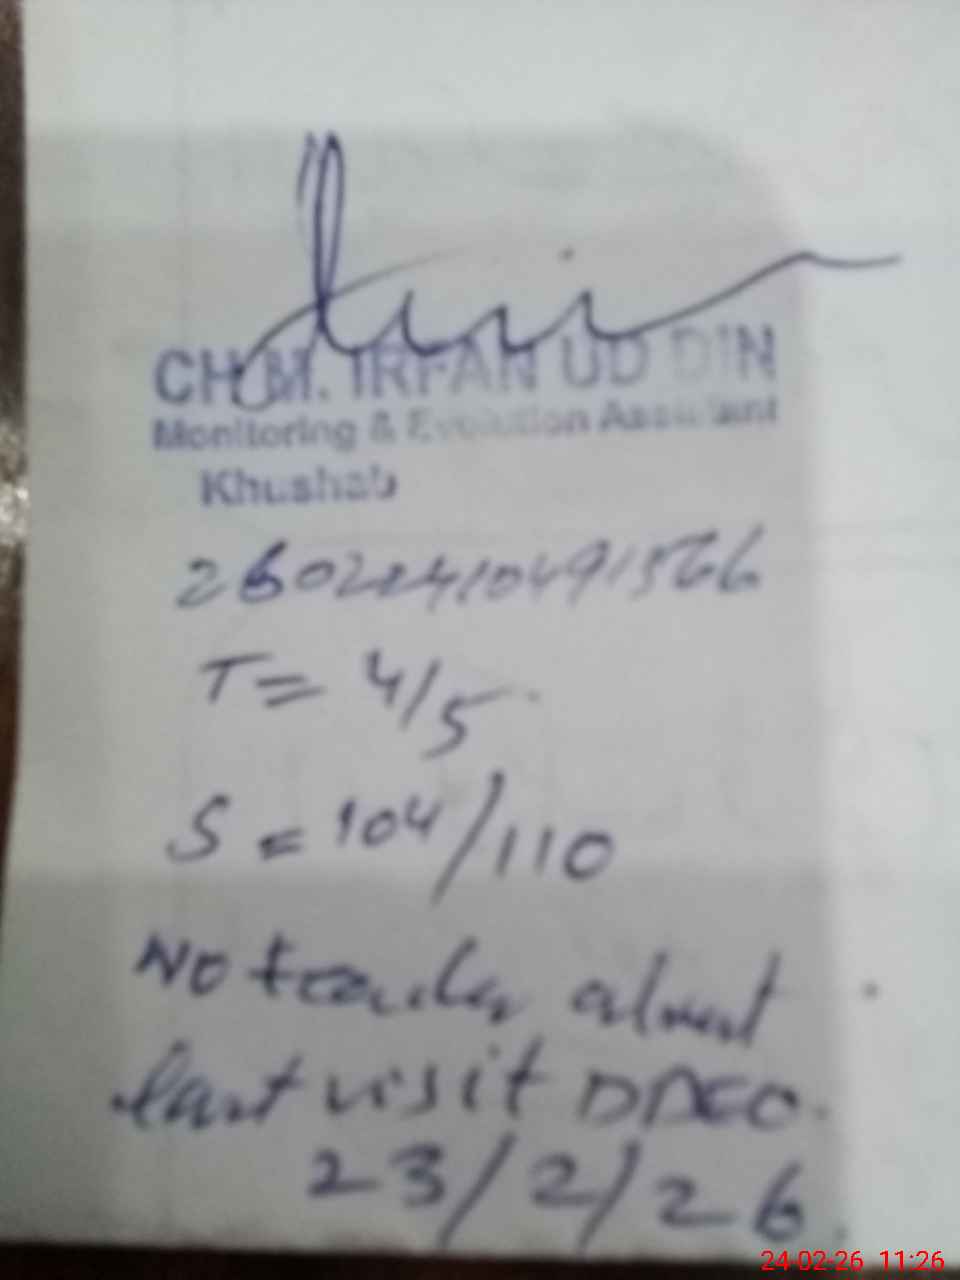 CH.M. IRFAN UD DIN
Monitoring & Evolution Assistant
Khushab
T = 4/5
S = 104/110
No teacher absent
last visit DDEO
23/2/26
24-02-26 11:26